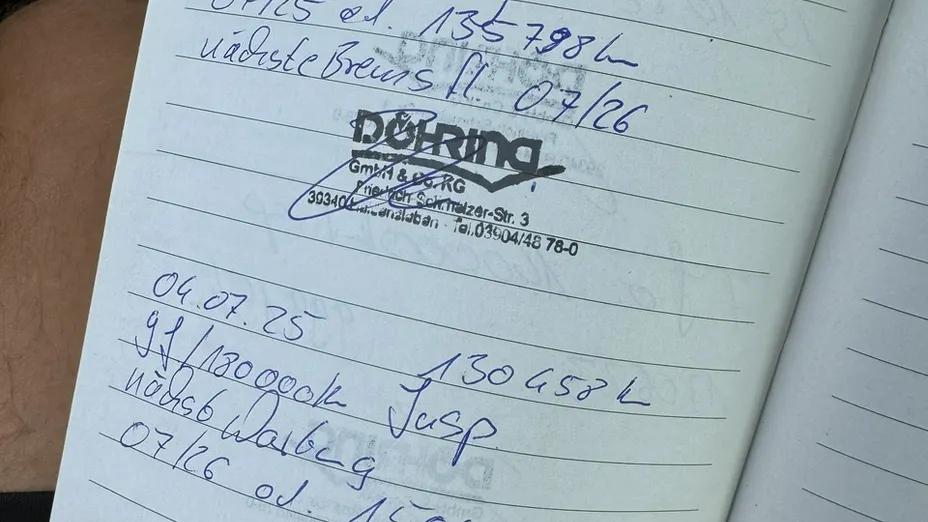 07/25 od. 135798k
nächste Bremsfl. 07/26
DÖHRING
GmbH & Co. KG
Friedrich-Schmelzer-Str. 3
Tel.03904/48 78-0
04.07.25
130458k
9J/130000k Insp.
nächste Wartung
07/26 od.